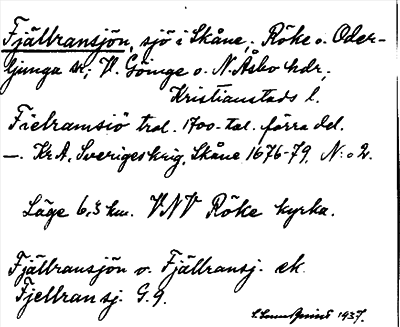 Fjällransjön, sjö i Skåne; Röke o. Oder-
ljunga sn; V. Göinge o. N. Åsbo hdr,
Kristianstads l.
Fielramsiö trol. 1700-tal. förra del.
—. Kr.A. Sveriges krig, Skåne 1676-79, N:o 2.
Läge 6,3 km. VNV Röke kyrka.
Fjällransjön o. Fjällransj. ek.
Fjellransj. G.9.
1937.